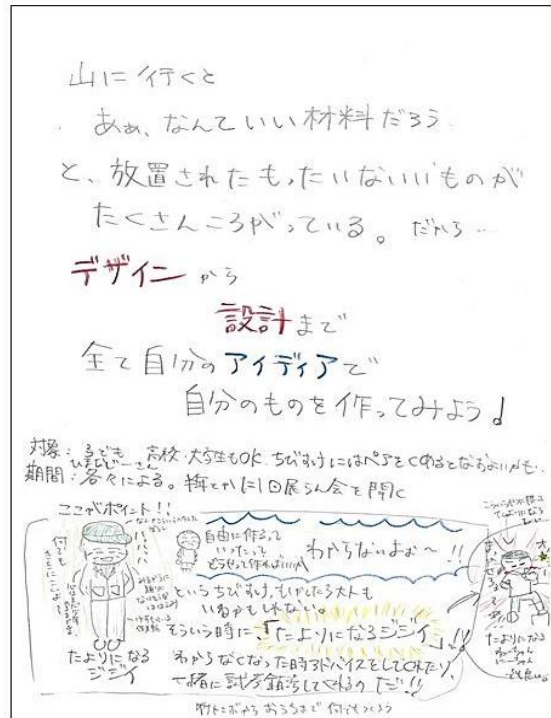 山に行くと
あぁ、なんていい材料だろう
と、放置されたもったいないいいものが
たくさんころがっている。だから…
デザインから
設計まで
全て自分のアイディアで
自分のものを作ってみよう!
対象: 高校・大学生もOK. ちびすけにはペアを
期間: 各々による。 1回展らん会を開く
ここがポイント!!
何でも
たよりになる
ジジイ
自由に作るって
いったって
どうやって作ればいいか
わからないよぉ〜!!
というちびすけ、もしかしたら大人も
いるかもしれない。
そういう時に「たよりになるジジイ」!!
わからなくなった時アドバイスをしてくれたり、
一緒に試行錯誤してくれるのだ!!
たよりになる
ねーちゃん
にーちゃん
でも良い。
何でもつくろう